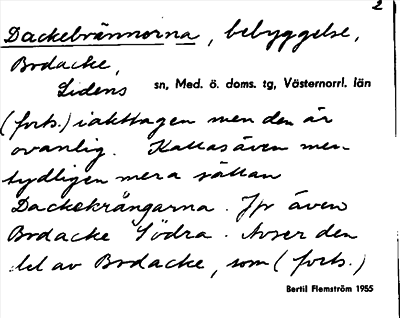 2
Dackebrännorna, bebyggelse,
Brdacke,
Lidens sn, Med. ö. doms. tg, Västernorrl. län
(forts.) iakttagen men den är
ovanlig. Kallas även men
tydligen mera sällan
Dackekrängarna. Jfr även
Brdacke Södra. Avser den
del av Brdacke, som (forts.)
Bertil Flemström 1955